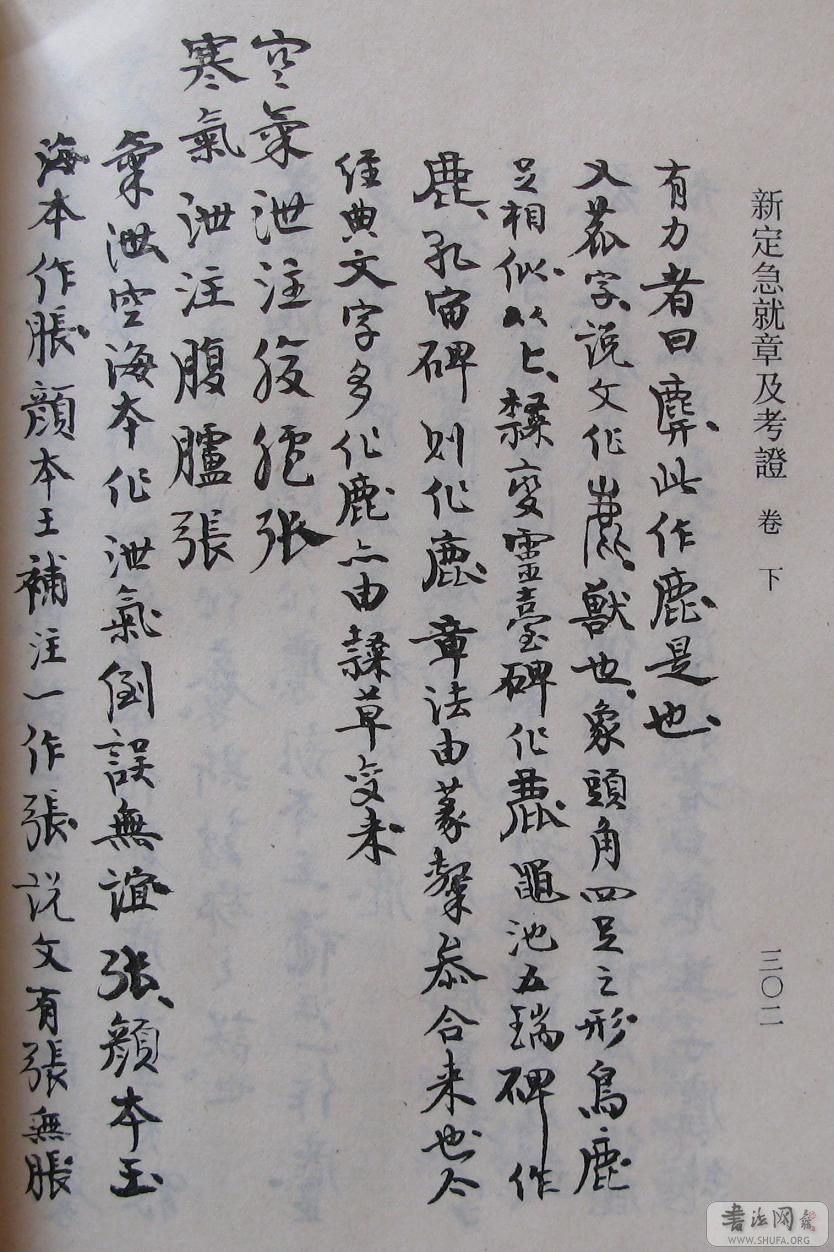 新定急就章及考證 卷下 三〇二
有力者曰麎此作鹿是也
又鹿字说文作鹿獸也象頭角四足之形鳥鹿
足相似从匕隸變靈臺碑作鹿黽池五瑞碑作
鹿孔宙碑則作鹿章法由篆隸參合来也今
經典文字多作鹿亦由隸草变来
寒氣泄注腹臚张
寒氣泄注腹臚張
氣泄空海本作泄氣倒誤無誼张顔本玉
海本作脹顔本王補注一作張说文有張無脹
書法网
WWW.SHUFA.ORG